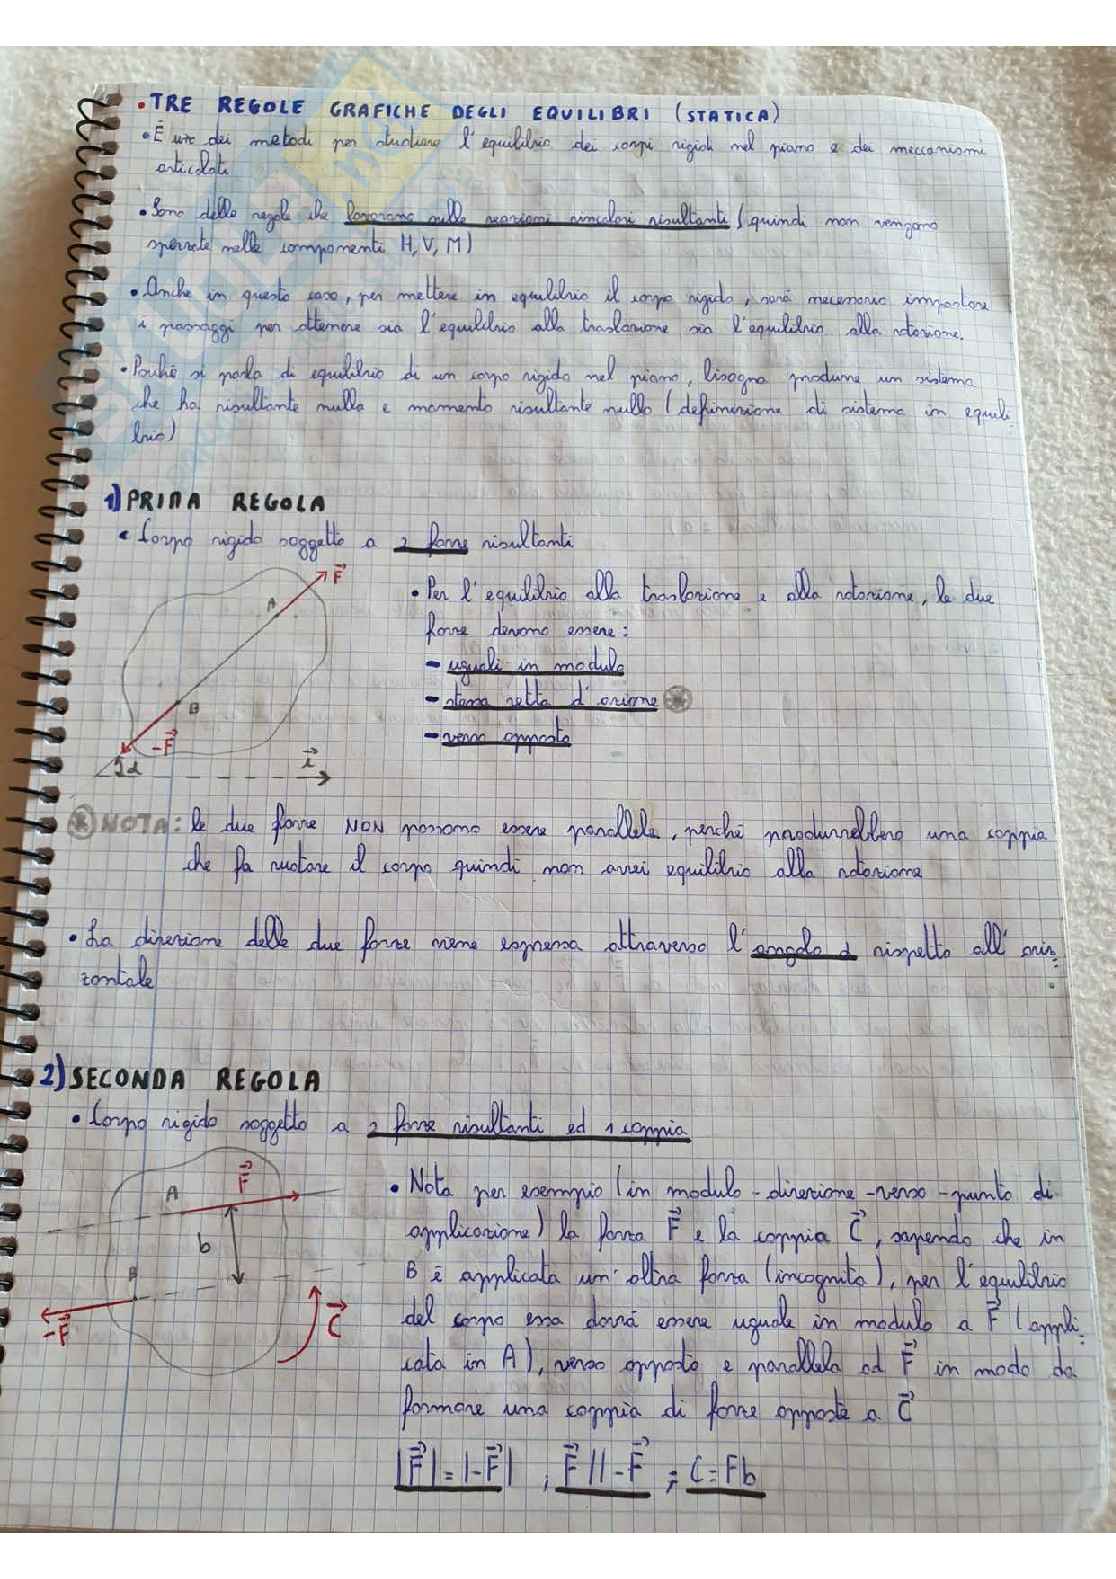 • TRE REGOLE GRAFICHE DEGLI EQUILIBRI (STATICA)
• È uno dei metodi per studiare l'equilibrio dei corpi rigidi nel piano e dei meccanismi
articolati
• Sono delle regole che lavorano sulle reazioni vincolari risultanti (quindi non vengono
spezzate nelle componenti H, V, M)
• Anche in questo caso, per mettere in equilibrio il corpo rigido, sarà necessario impostare
i passaggi per ottenere sia l'equilibrio alla traslazione sia l'equilibrio alla rotazione.
• Poiché si parla di equilibrio di un corpo rigido nel piano, bisogna produrre un sistema
che ha risultante nulla e momento risultante nullo (definizione di sistema in equili-
brio)
1) PRIMA REGOLA
• Corpo rigido soggetto a 2 forze risultanti
F⃗
A
B
-F⃗
α
i⃗
• Per l'equilibrio alla traslazione e alla rotazione, le due
forze devono essere:
- uguali in modulo
- stessa retta d'azione ⊛
- verso opposto
⊛ NOTA: le due forze NON possono essere parallele, perché produrrebbero una coppia
che fa ruotare il corpo quindi non avrei equilibrio alla rotazione
• La direzione delle due forze viene espressa attraverso l'angolo α rispetto all'oriz-
zontale
2) SECONDA REGOLA
• Corpo rigido soggetto a 2 forze risultanti ed 1 coppia
A
F⃗
b
B
-F⃗
C⃗
• Nota per esempio (in modulo - direzione - verso - punto di
applicazione) la forza F⃗ e la coppia C⃗, sapendo che in
B è applicata un'altra forza (incognita), per l'equilibrio
del corpo essa dovrà essere uguale in modulo a F⃗ (appli-
cata in A), verso opposto e parallela ad F⃗ in modo da
formare una coppia di forze opposte a C⃗
|F⃗| = |-F⃗| ; F⃗ // -F⃗ ; C = Fb